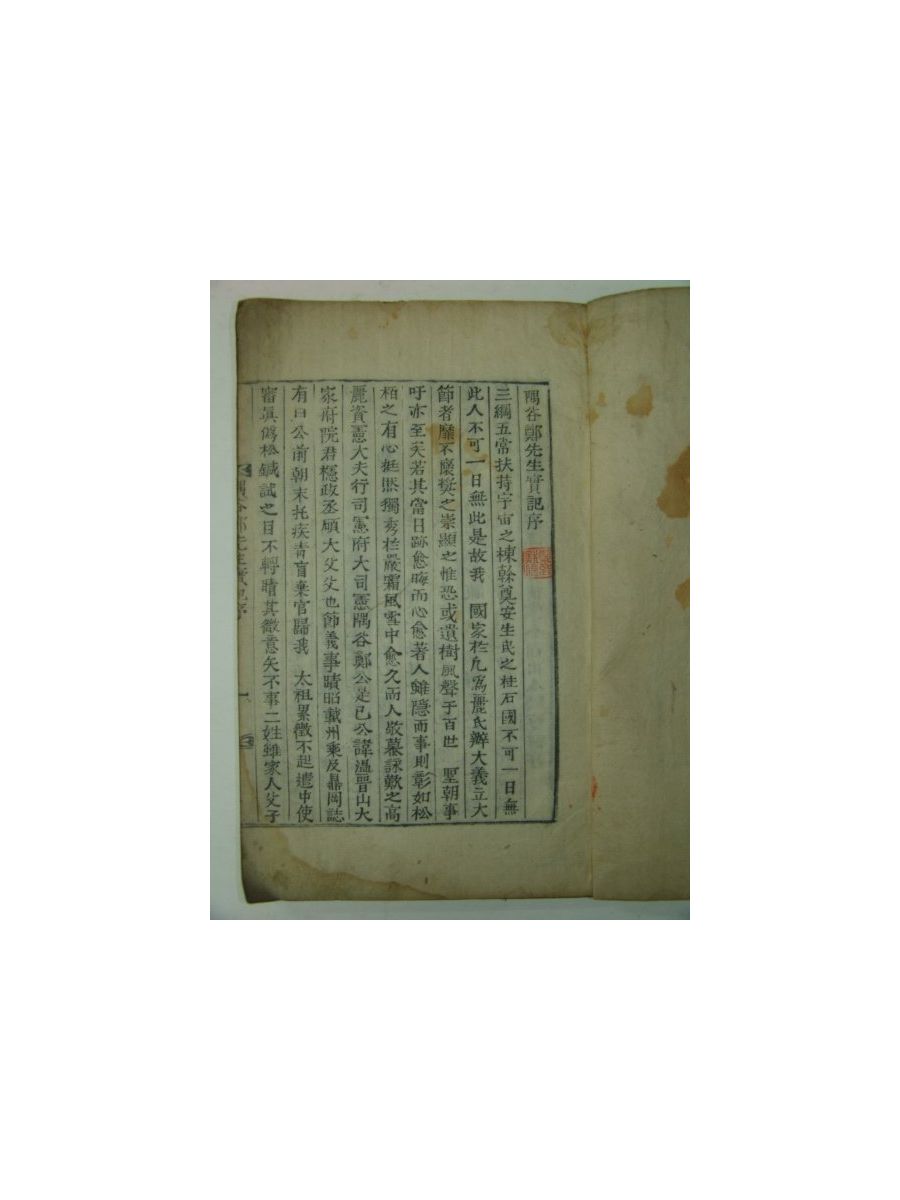 隅谷鄭先生實記序
三綱五常扶持宇宙之棟榦奠安生民之柱石國不可一日無
此人不可一日無此是故我 國家於凡爲麗氏辦大義立大
節者靡不褒獎之崇顯之惟恐或遺樹風聲于百世 聖朝事
吁亦至矣若其當日跡愈晦而心愈著人雖隱而事則彰如松
栢之有心挺然獨秀於嚴霜風雪中愈久而人敬慕詠歎之高
麗資憲大夫行司憲府大司憲隅谷鄭公是已公諱溫晋山大
家府院君穩政丞碩大父父也節義事蹟昭載州乘及鼎岡誌
有曰公前朝末托疾靑盲棄官歸我 太祖累徵不起遣中使
審眞僞松鍼試之目不轉睛其微意矢不事二姓雖家人父子
隅谷鄭先生實記序 一